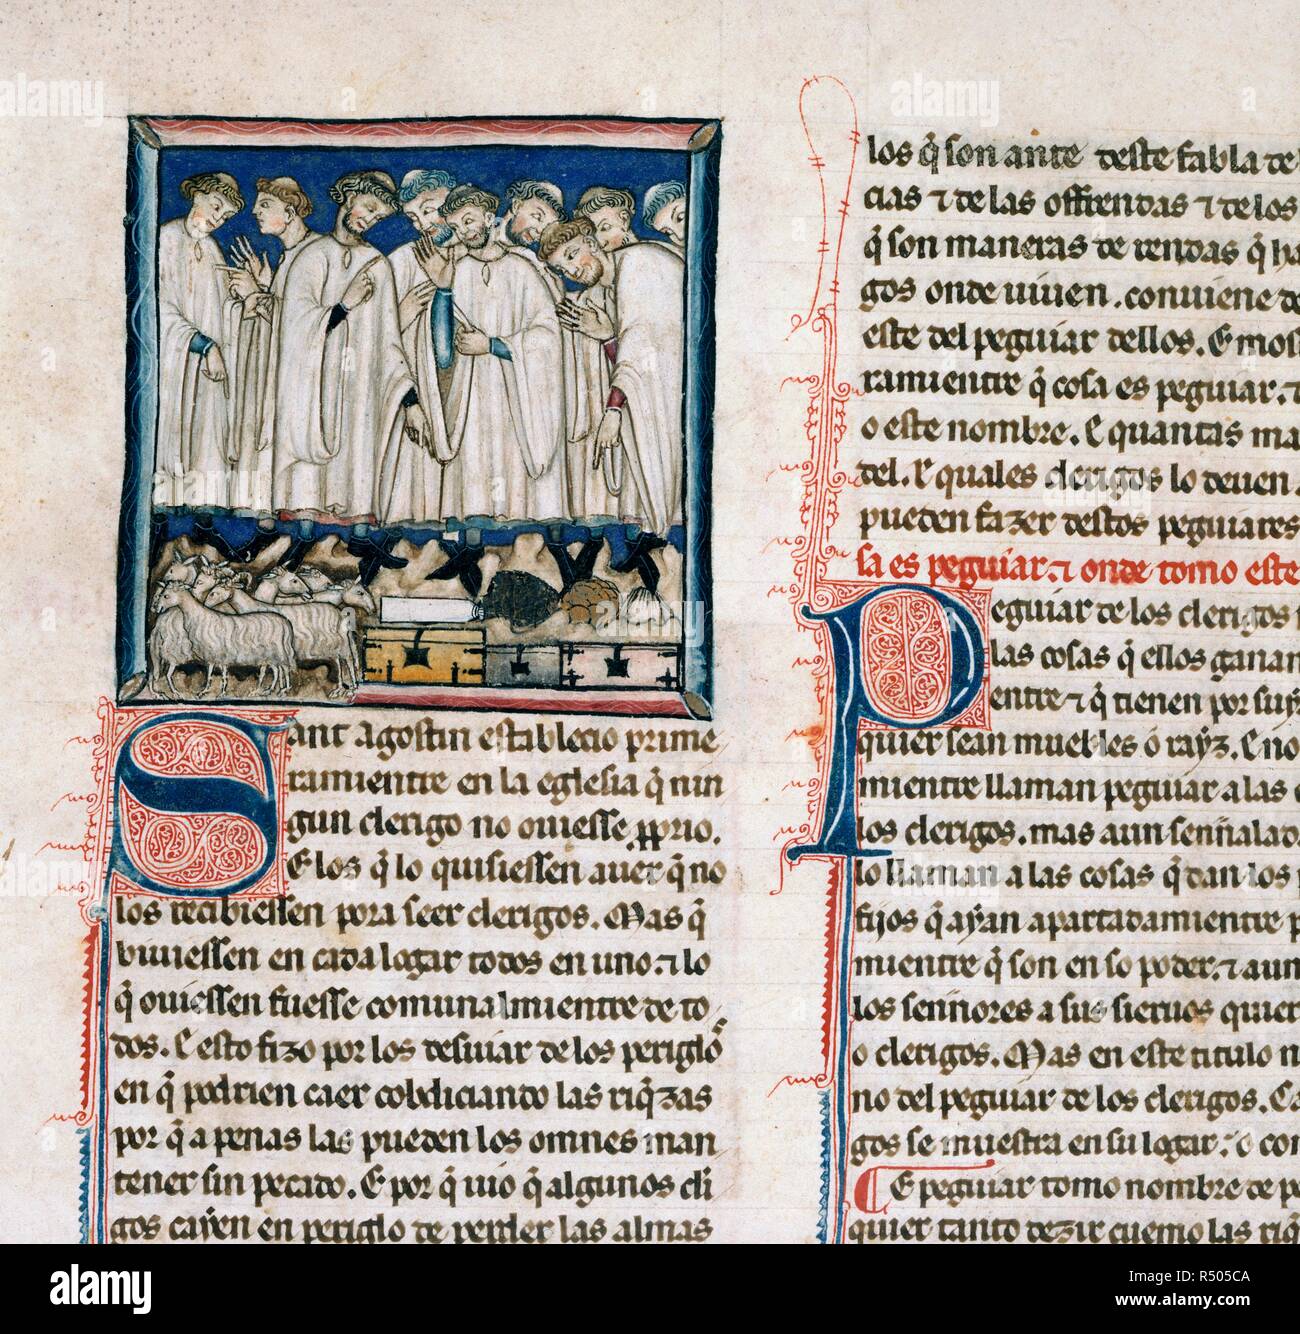 Sant Agostin establecio prime
ramientre en la eglesia q̃ nin
gun clerigo no ouiesse ꝓprio.
E los q̃ lo quisiessen auer q̃ no
los recibiessen pora seer clerigos. Mas q̃
biuiessen en cada logar todos en uno. ⁊ lo
q̃ ouiessen fuesse comunalmientre de to
dos. E esto fizo por los desuiar de los periglos
en q̃ podrien caer cobdiciando las riq̃zas
por q̃ a penas las pueden los omnes man
tener sin pecado. E por q̃ uio q̃ algunos cli
gos cayen en periglo de perder las almas
los q̃ son ante deste fabla de
cias ⁊ de las offrendas ⁊ de los
q̃ son maneras de rendas q̃ ha
gos onde uiuen. conuiene de
este del peguiar dellos. E mos
ramientre q̃ cosa es peguiar. ⁊
o este nombre. E quantas ma
del. E quales clerigos lo deuen
pueden fazer destos peguiares
sa es peguiar. ⁊ onde tomo este
Peguiar de los clerigos
las cosas q̃ ellos ganan
entre ⁊ q̃ tienen por suy
quier sean muebles ó rayz. E no
mientre llaman peguiar a las
los clerigos. mas aun sennalad
lo llaman a las cosas q̃ dan los
fijos q̃ ayan apartadamientre p
mientre q̃ son en so poder. ⁊ aun
los sennores a sus sieruos quier
o clerigos. Mas en este titulo n
no del peguiar de los clerigos. Ca
gos se muestra en su logar. o con
E peguiar tomo nombre de pe
quier tanto dezir cuemo las riq̃
alamy
Image ID: R505CA
www.alamy.com